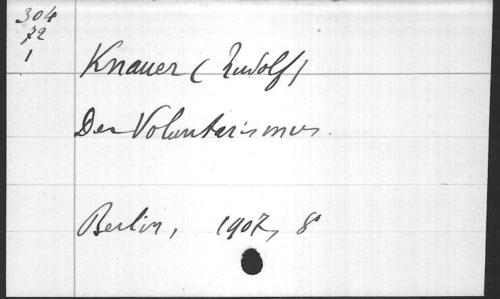 304
72
1
Knauer (Rudolf)
Der Voluntarismus.
Berlin, 1907, 8°